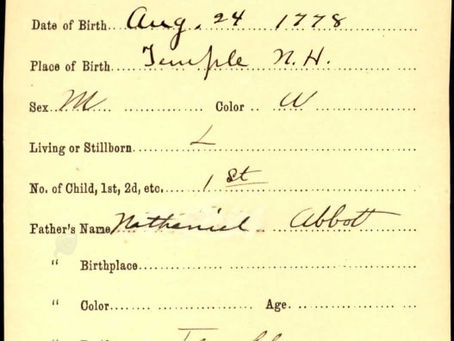 Date of Birth Aug. 24 1778
Place of Birth Temple N.H.
Sex M Color W
Living or Stillborn L
No. of Child, 1st, 2d, etc. 1 st
Father's Name Nathaniel Abbott
" Birthplace
" Color Age
"